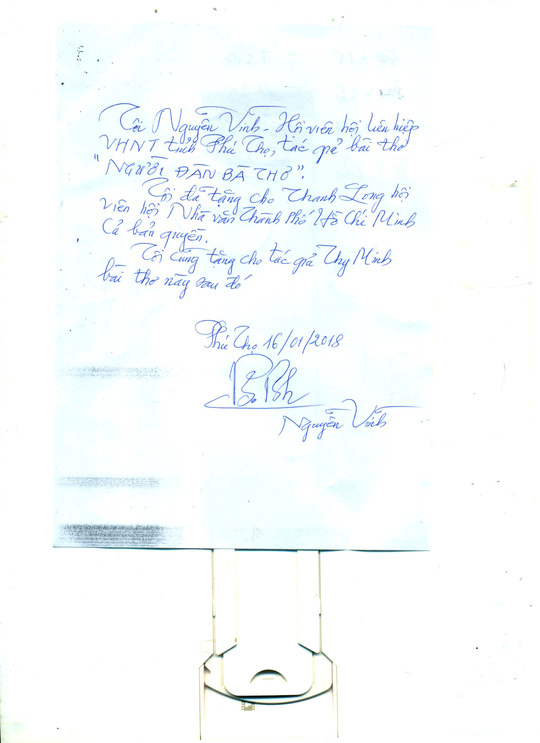 Tôi Nguyễn Vĩnh - Hội viên hội liên hiệp
VHNT tỉnh Phú Thọ, tác giả bài thơ
"NGƯỜI ĐÀN BÀ THƠ".
Tôi đã tặng cho Thanh Long hội
viên hội Nhà văn Thành Phố Hồ Chí Minh
cả bản quyền.
Tôi cũng tặng cho tác giả Thy Minh
bài thơ này sau đó
Phú Thọ 16/01/2018
Nguyễn Vĩnh